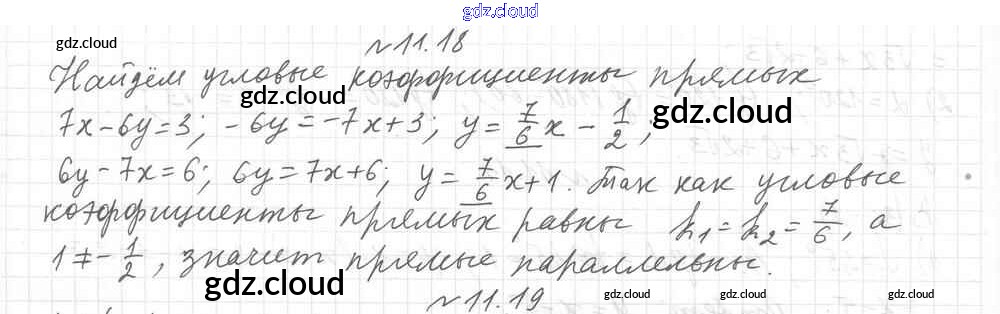 gdz.cloud
gdz.cloud
№11.18
Найдём угловые коэффициенты прямых
gdz.cloud
7x-6y=3; -6y=-7x+3; y=7/6x-1/2;
gdz.cloud
6y-7x=6; 6y=7x+6; y=7/6x+1. Так как угловые
коэффициенты прямых равны k₁=k₂=7/6, а
1≠-1/2, значит прямые параллельны.
gdz.cloud
№11.19
gdz.cloud
gdz.cloud